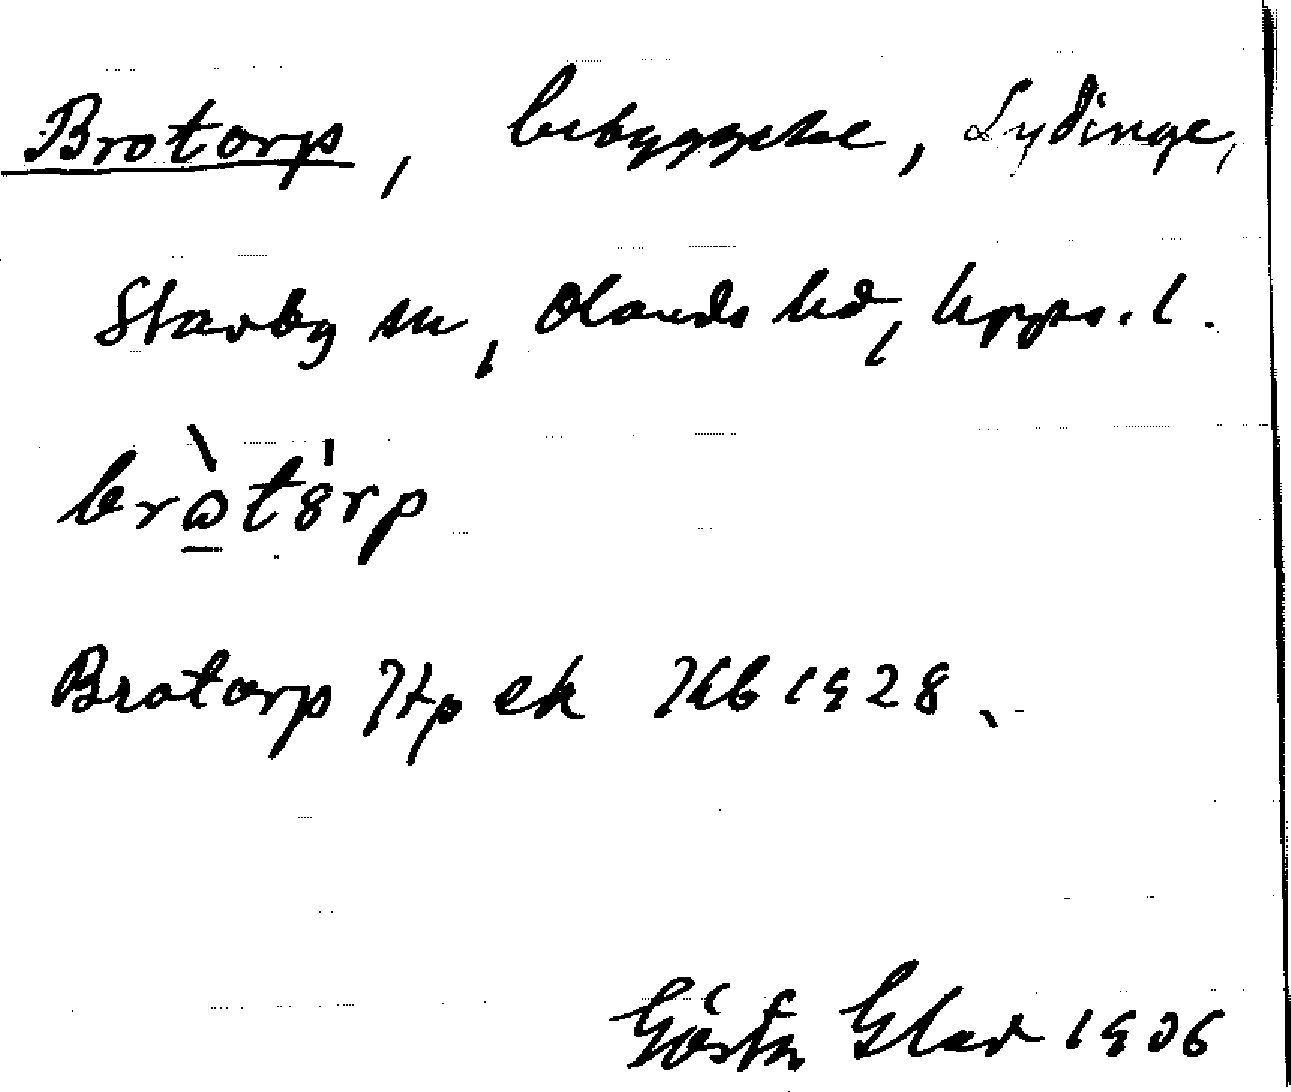 Brotorp, bebyggelse, Lydinge,
Stavby sn, Olands hd, Upps. l.
bròtórp
Brotorp Htp ek Kb 1928.
Gösta Glad 1936